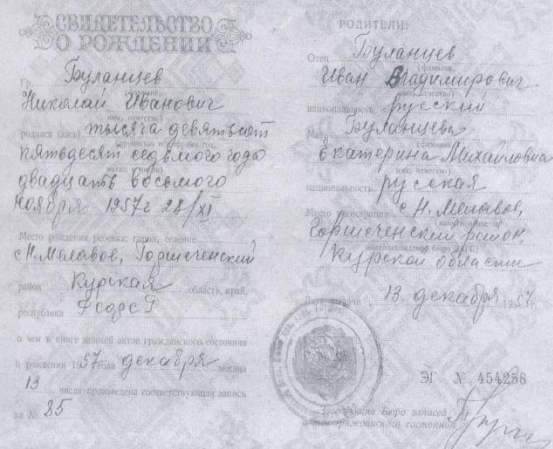 СВИДЕТЕЛЬСТВО
О РОЖДЕНИИ
Гр. Буланцев
Николай Иванович
тысяча девятьсот
пятьдесят седьмого года
двадцать восьмого
Ноября 1957г 28/XI
Место рождения ребенка: город, селение
с Н.Меловое, Горшеченский
район Курская область, край,
республика РСФСР
о чем в книге записей актов гражданского состояния
о рождении 1957 года декабря месяца
13 числа произведена соответствующая запись
за № 85
РОДИТЕЛИ:
Отец Буланцев
Иван Владимирович
национальность русский
Мать Буланцева
Екатерина Михайловна
национальность русская
Место регистрации с. Н. Меловое,
Горшеченский район,
Курской области
13. декабря 1957.
ЭГ № 454258
Бюро записей
актов гражданского состояния